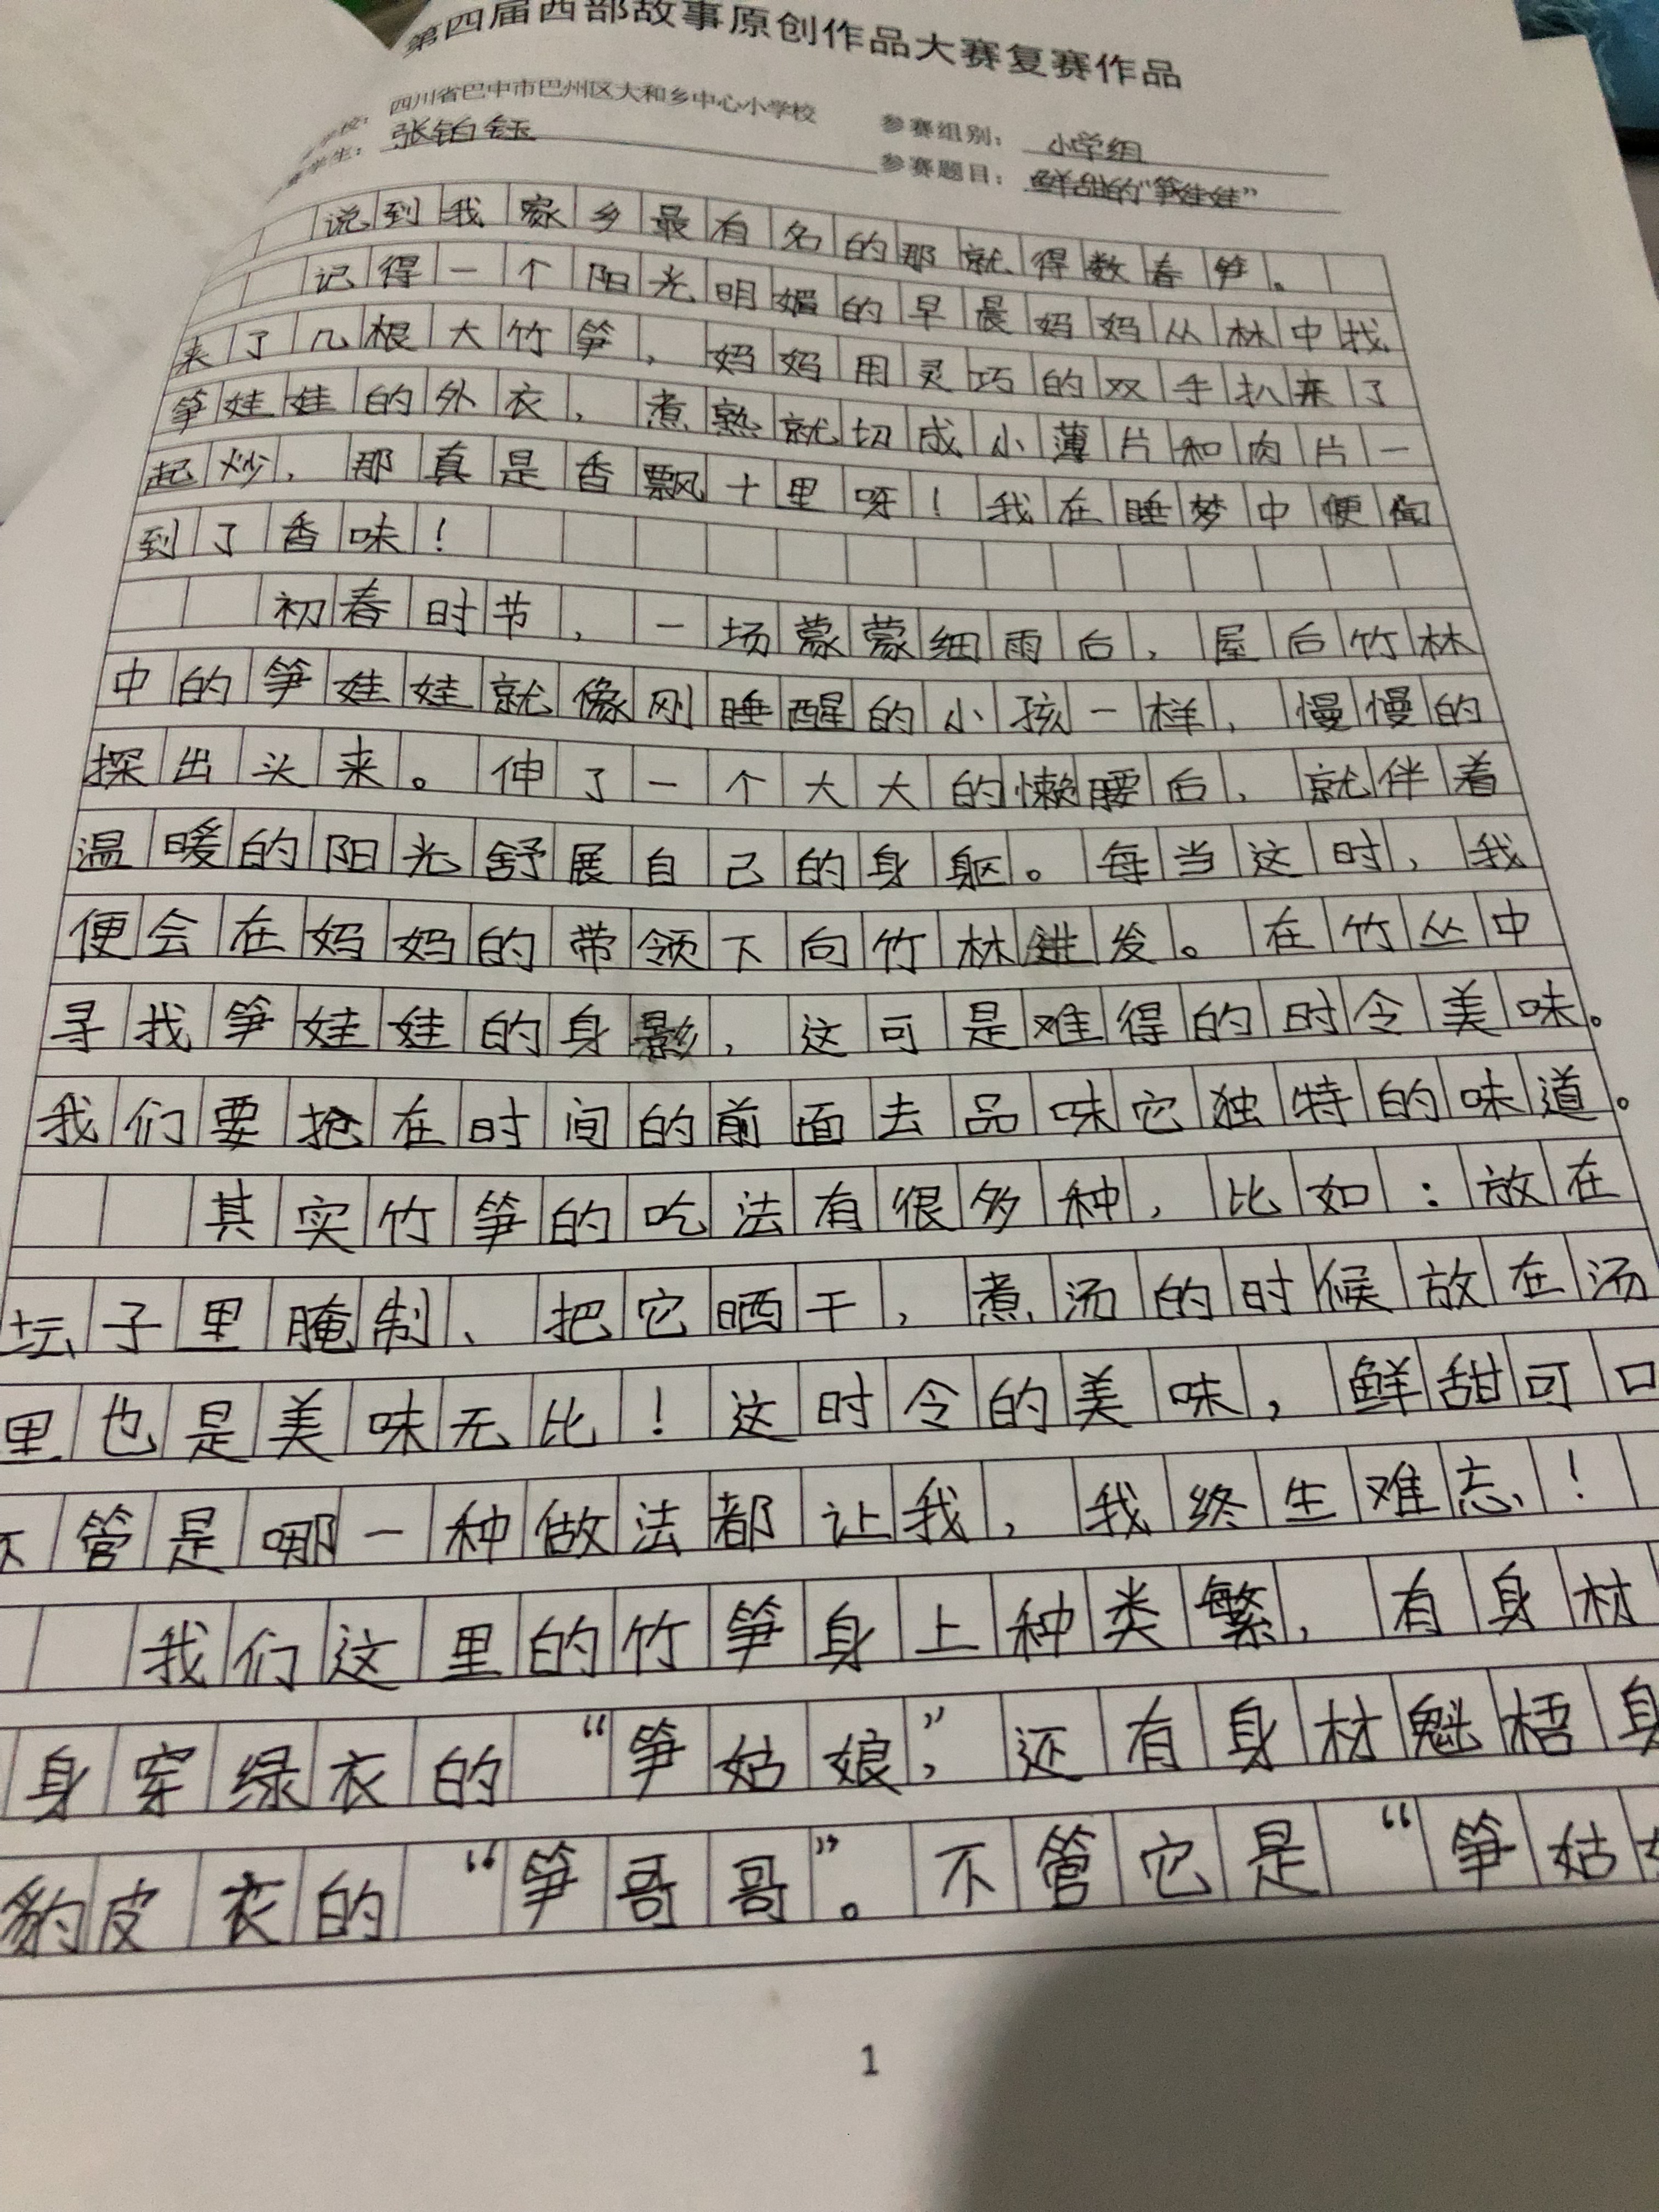 第四届西部故事原创作品大赛复赛作品
校：四川省巴中市巴州区大和乡中心小学校 参赛组别：小学组
赛学生：张铂钰 参赛题目：鲜甜的“笋娃娃”
说到我家乡最有名的那就得数春笋。
记得一个阳光明媚的早晨妈妈丛林中找
来了几根大竹笋，妈妈用灵巧的双手扒来了
笋娃娃的外衣，煮熟就切成小薄片和肉片一
起炒，那真是香飘十里呀！我在睡梦中便闻
到了香味！
初春时节，一场蒙蒙细雨后，屋后竹林
中的笋娃娃就像刚睡醒的小孩一样，慢慢的
探出头来。伸了一个大大的懒腰后，就伴着
温暖的阳光舒展自己的身躯。每当这时，我
便会在妈妈的带领下向竹林进发。在竹丛中
寻找笋娃娃的身影，这可是难得的时令美味。
我们要抢在时间的前面去品味它独特的味道。
其实竹笋的吃法有很多种，比如：放在
坛子里腌制、把它晒干，煮汤的时候放在汤
里也是美味无比！这时令的美味，鲜甜可口
不管是哪一种做法都让我，我终生难忘！
我们这里的竹笋身上种类繁，有身材
身穿绿衣的“笋姑娘”，还有身材魁梧身
豹皮衣的“笋哥哥”。不管它是“笋姑
1